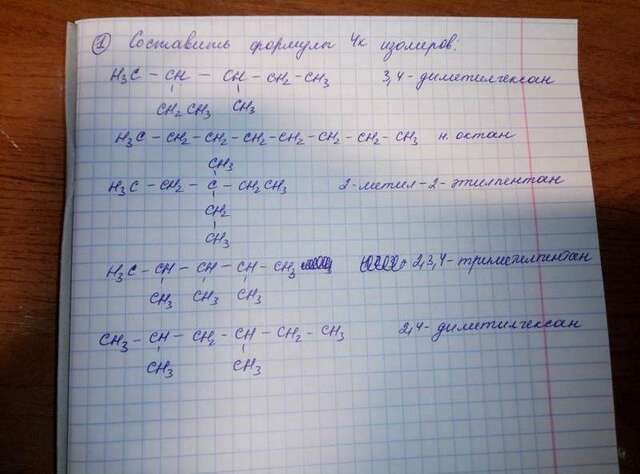 1 Составить формулы 4х изомеров:
H3C — CH — CH — CH2 — CH3 3,4-диметилгексан
CH2 CH3 CH3
H3C — CH2 — CH2 — CH2 — CH2 — CH2 — CH2 — CH3 н. октан
CH3
H3C — CH2 — C — CH2CH3 2-метил-2-этилпентан
CH2
CH3
H3C — CH — CH — CH — CH3 2,3,4-триметилпентан
CH3 CH3 CH3
CH3 — CH — CH2 — CH — CH2 — CH3 2,4-диметилгексан
CH3 CH3